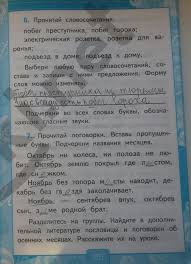 6. Прочитай словосочетания.
побег преступника, побег гороха;
электрическая розетка, розетка для ва-
ренья;
подъезд в доме, подъезд к дому.
Выбери любую пару словосочетаний, со-
ставь и запиши с ними предложения. Форму
слов можно изменять.
Побег преступника из тюрьмы
побег гороха
Подчеркни во всех словах буквы, обозна-
7. Прочитай поговорки. Вставь пропущен-
ные буквы. Подчеркни названия месяцев.
Октябрь ни колеса, ни полоза не лю-
бит. Октябрь землю покроет где л стом,
где сн жком.
Ноябрь без топора м сты наводит, де-
кабрь без гв здя заколачивает.
Ноябрь — сентябрёв внук, октябрёв
сын, з ме родной брат.
Разделитесь на группы. Найдите в допол-
нительной литературе пословицы и поговорки об
осенних месяцах. Расскажите их на уроке.